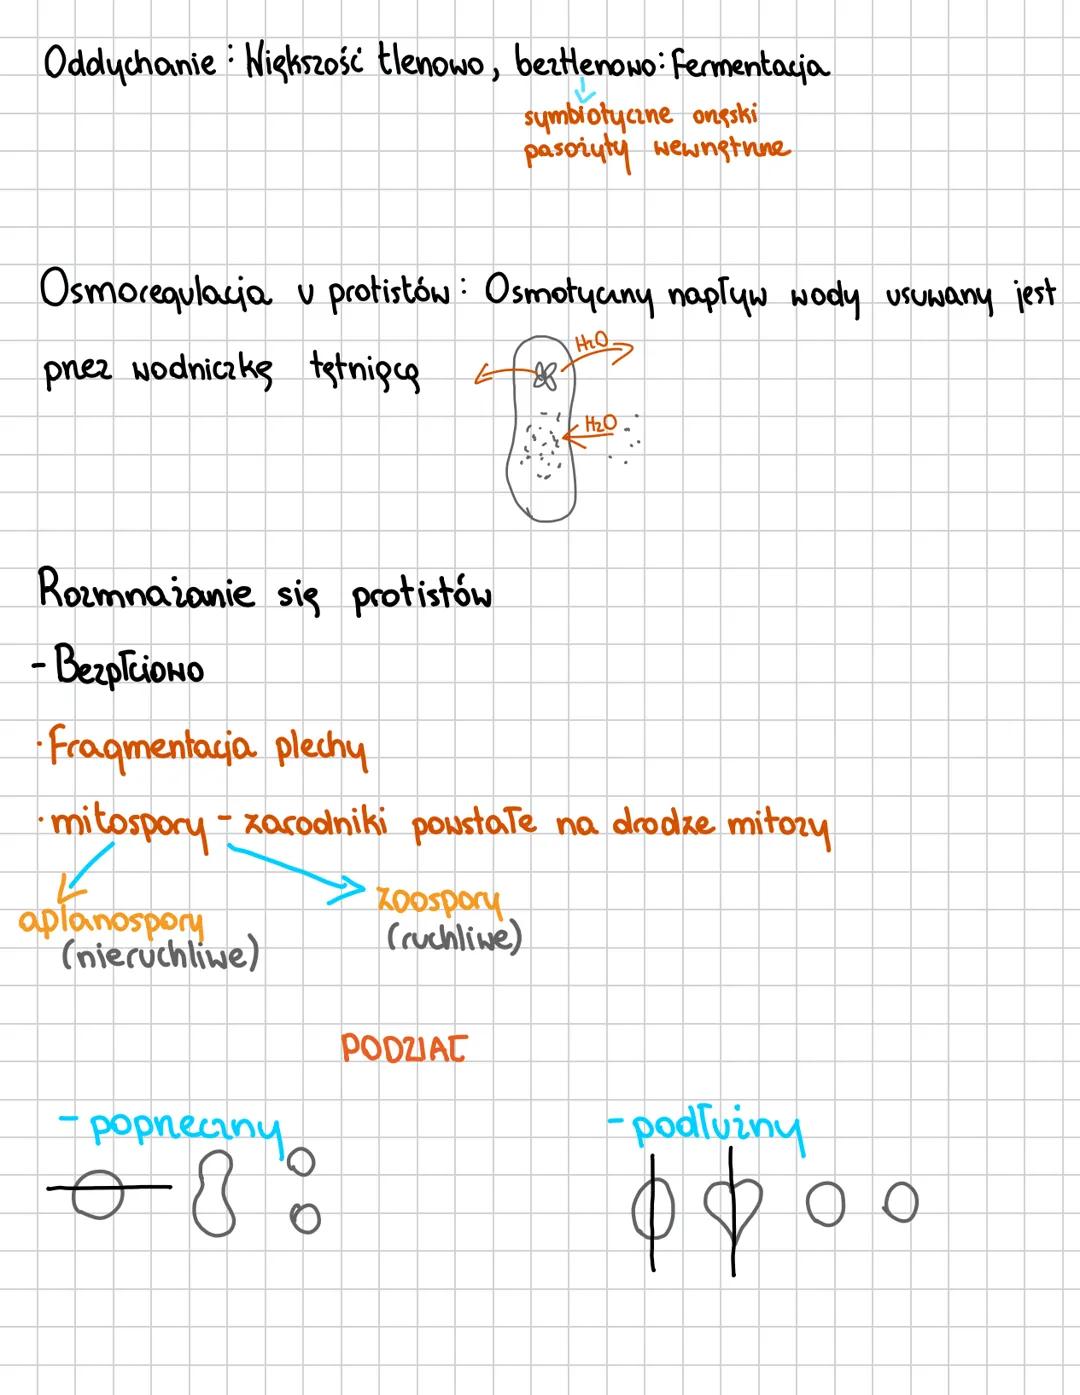 Oddychanie : Większość tlenowo, beztlenowo: Fermentacja
symbiotyczne orzęski
pasożyty wewnętrzne
Osmoregulacja u protistów : Osmotyczny napływ wody usuwany jest
H₂O
przez wodniczkę tętniącą
H₂O
Rozmnażanie się protistów
- Bezpłciowo
· Fragmentacja plechy
· mitospory - zarodniki powstałe na drodze mitozy
aplanospory
(nieruchliwe)
zoospory
(ruchliwe)
PODZIAŁ
- poprzeczny
- podłużny